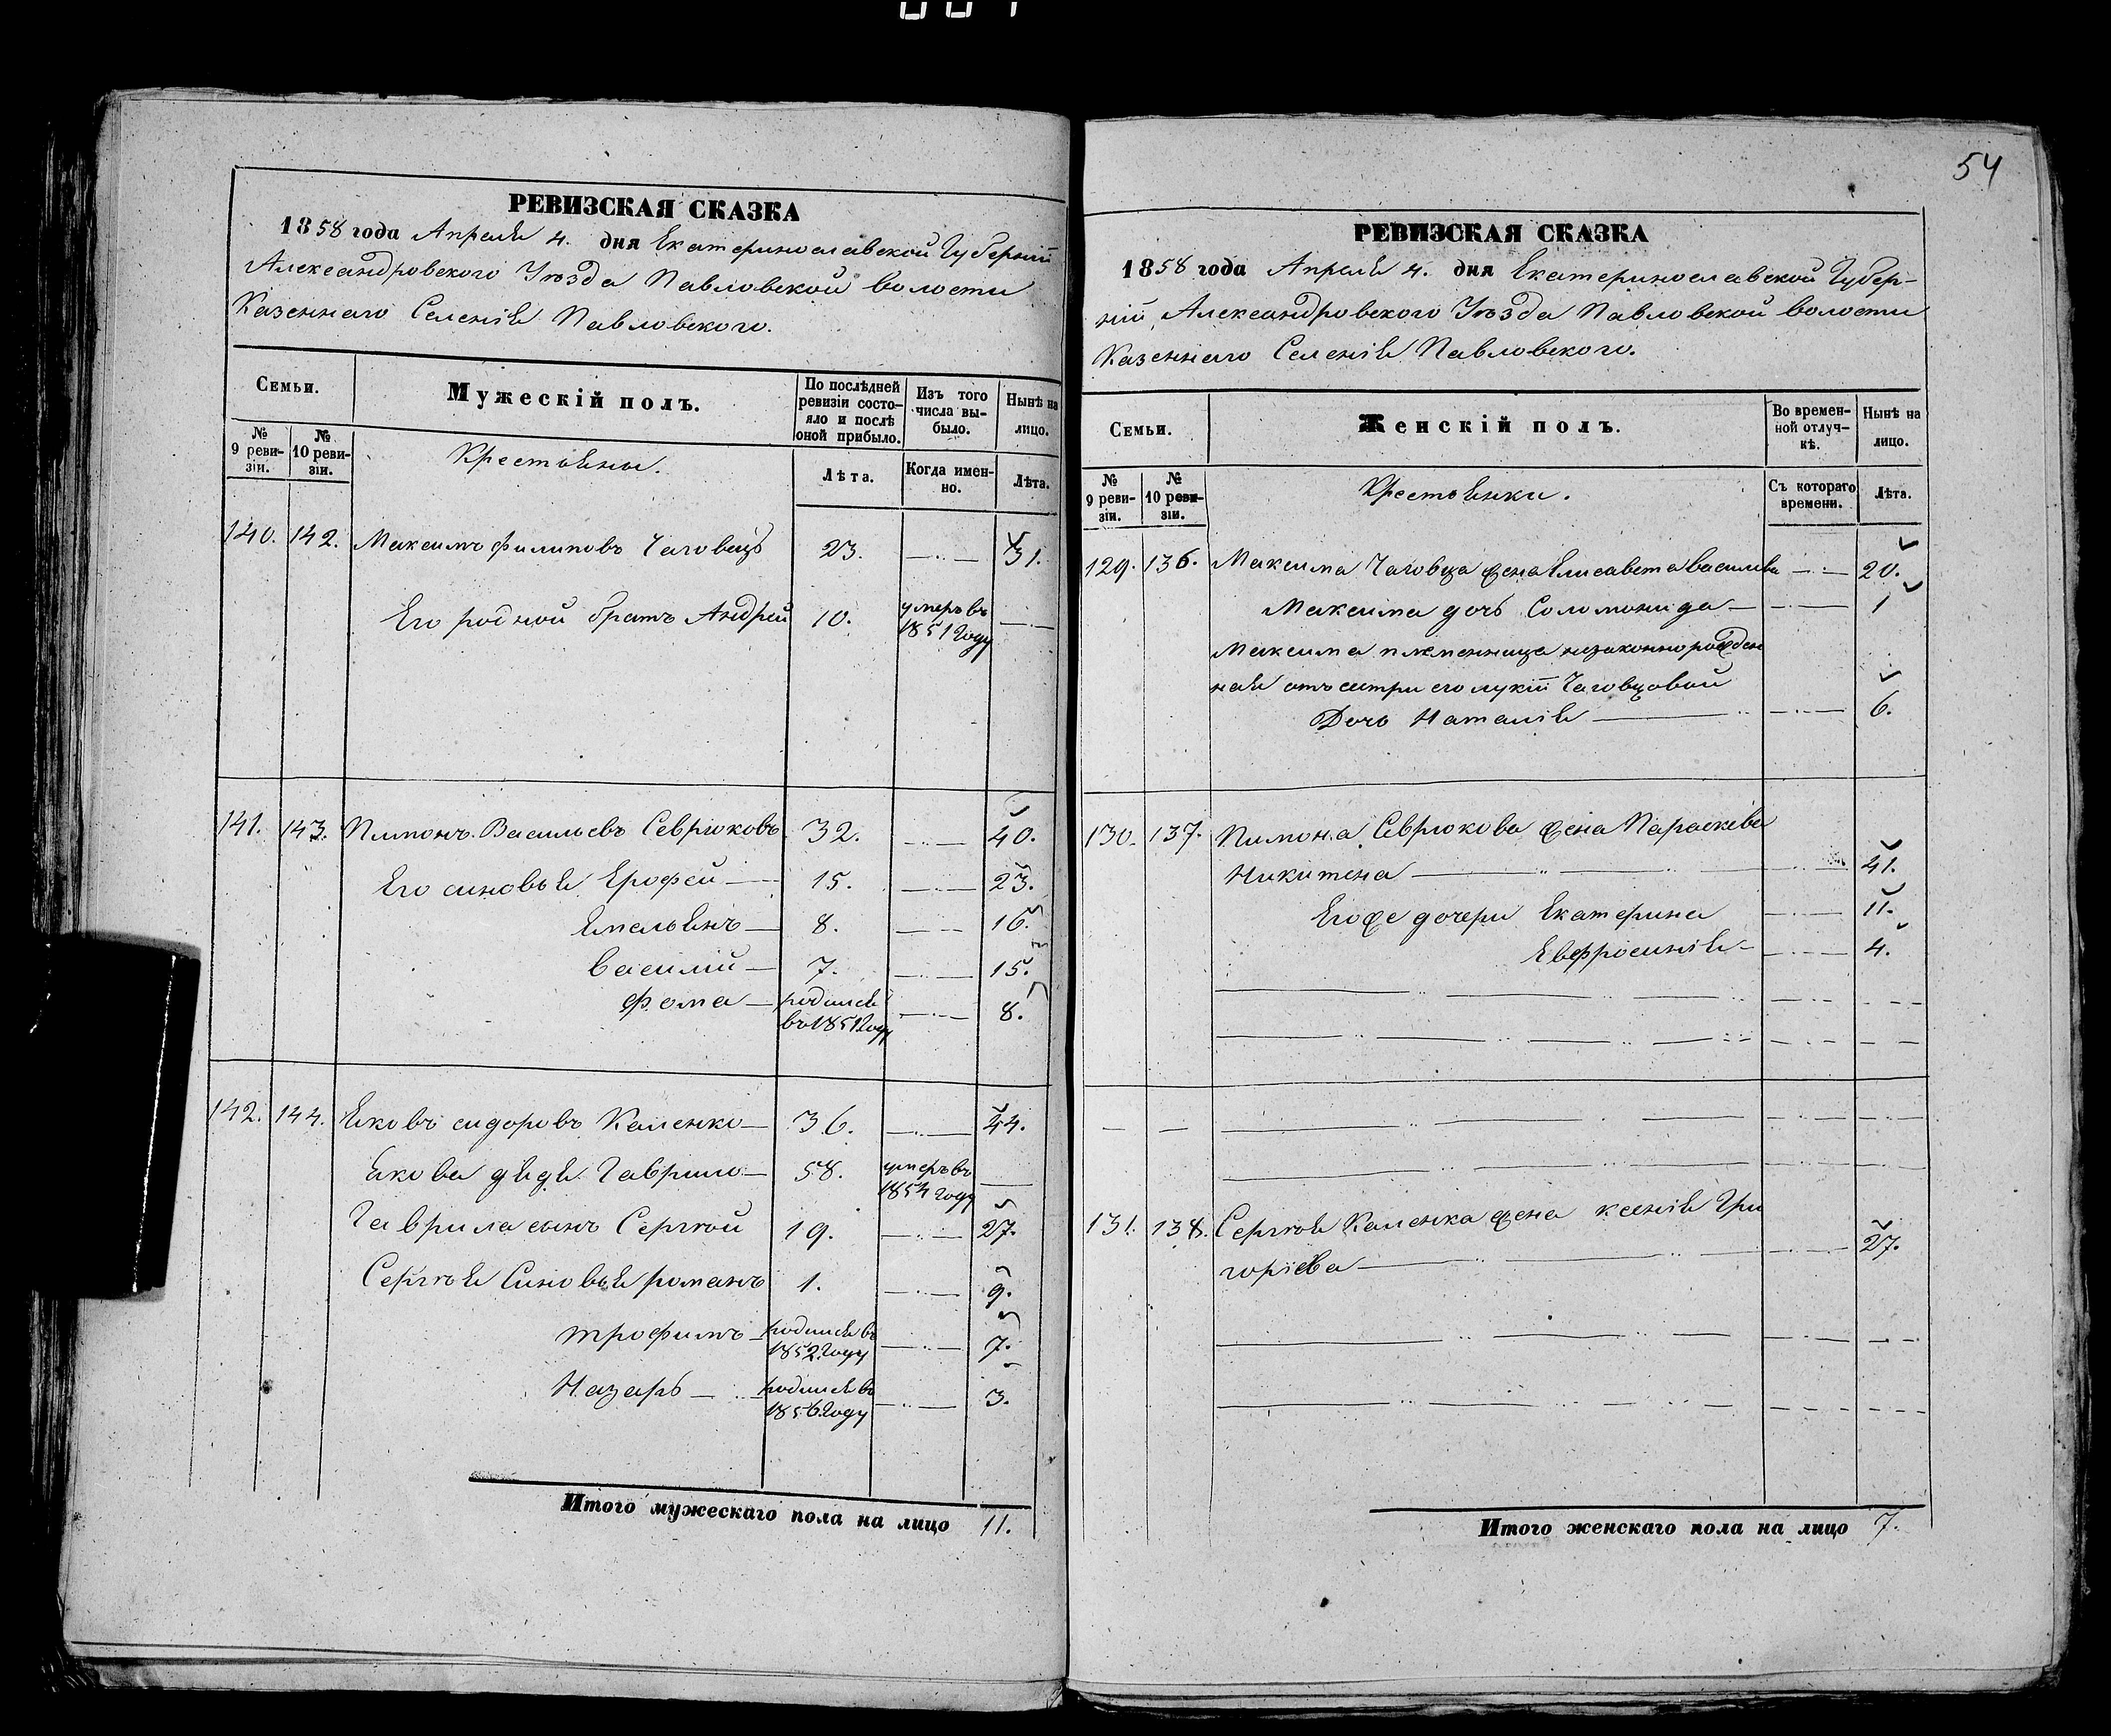 РЕВИЗСКАЯ СКАЗКА
1858 года Апреля 4. дня Екатеринославской Губерніи
Александровского Уѣзда Павловской волости
Казеннаго Селенія Павловского.
Семьи.
Мужескій полъ.
По послѣдней
ревизіи состо-
яло и послѣ
оной прибыло.
Изъ того
числа вы-
было.
Нынѣ на
лицо.
№
9 реви-
зіи.
№
10 реви-
зіи.
Крестьяне.
Лѣта.
Когда имен-
но.
Лѣта.
140. 142. Максимъ Филиповъ Чаговецъ 23. 31.
Его родной братъ Андрей 10. умеръ въ 1851 Году
141. 143. Пимонъ Васильевъ Севрюковъ 32. 40.
Его синовья Ерофей 15. 23.
Емельянъ 8. 16.
Василій 7. 15.
Фома родился въ 1851 Году 8.
142. 144. Яковъ Сидоровъ Каленко 36. 44.
Якова дядя Гаврило 58. умеръ въ 1854 Году
Гаврила сынъ Сергѣй 19. 27.
Сергѣя Синовья Романъ 1. 9.
Трофимъ родился въ 1852 Году 7.
Назаръ родился въ 1856 Году 3.
Итого мужескаго пола на лицо 11.
54
РЕВИЗСКАЯ СКАЗКА
1858 года Апреля 4. дня Екатеринославской Губер-
ніи, Александровского Уѣзда Павловской волости
Казеннаго Селенія Павловского.
Семьи.
Женскій полъ.
Во времен-
ной отлуч-
кѣ.
Нынѣ на
лицо.
№
9 реви-
зіи.
№
10 реви-
зіи.
Крестьянки.
Съ котораго
времени.
Лѣта.
129. 136. Максима Чаговца жена Елисавета Василева 20.
Максима дочь Соломонида 1
Максима племенница незаконнорожден
ная отъ сестри его Лукіи Чаговцовой
Дочь Наталія 6.
130. 137. Пимона Севрюкова жена Параскева
Никитена 41.
Егоже дочери Екатерина 11.
Евфросинія 4.
131. 138. Сергѣя Каленка жена Ксенія Гри
горіева 27.
Итого женскаго пола на лицо 7.